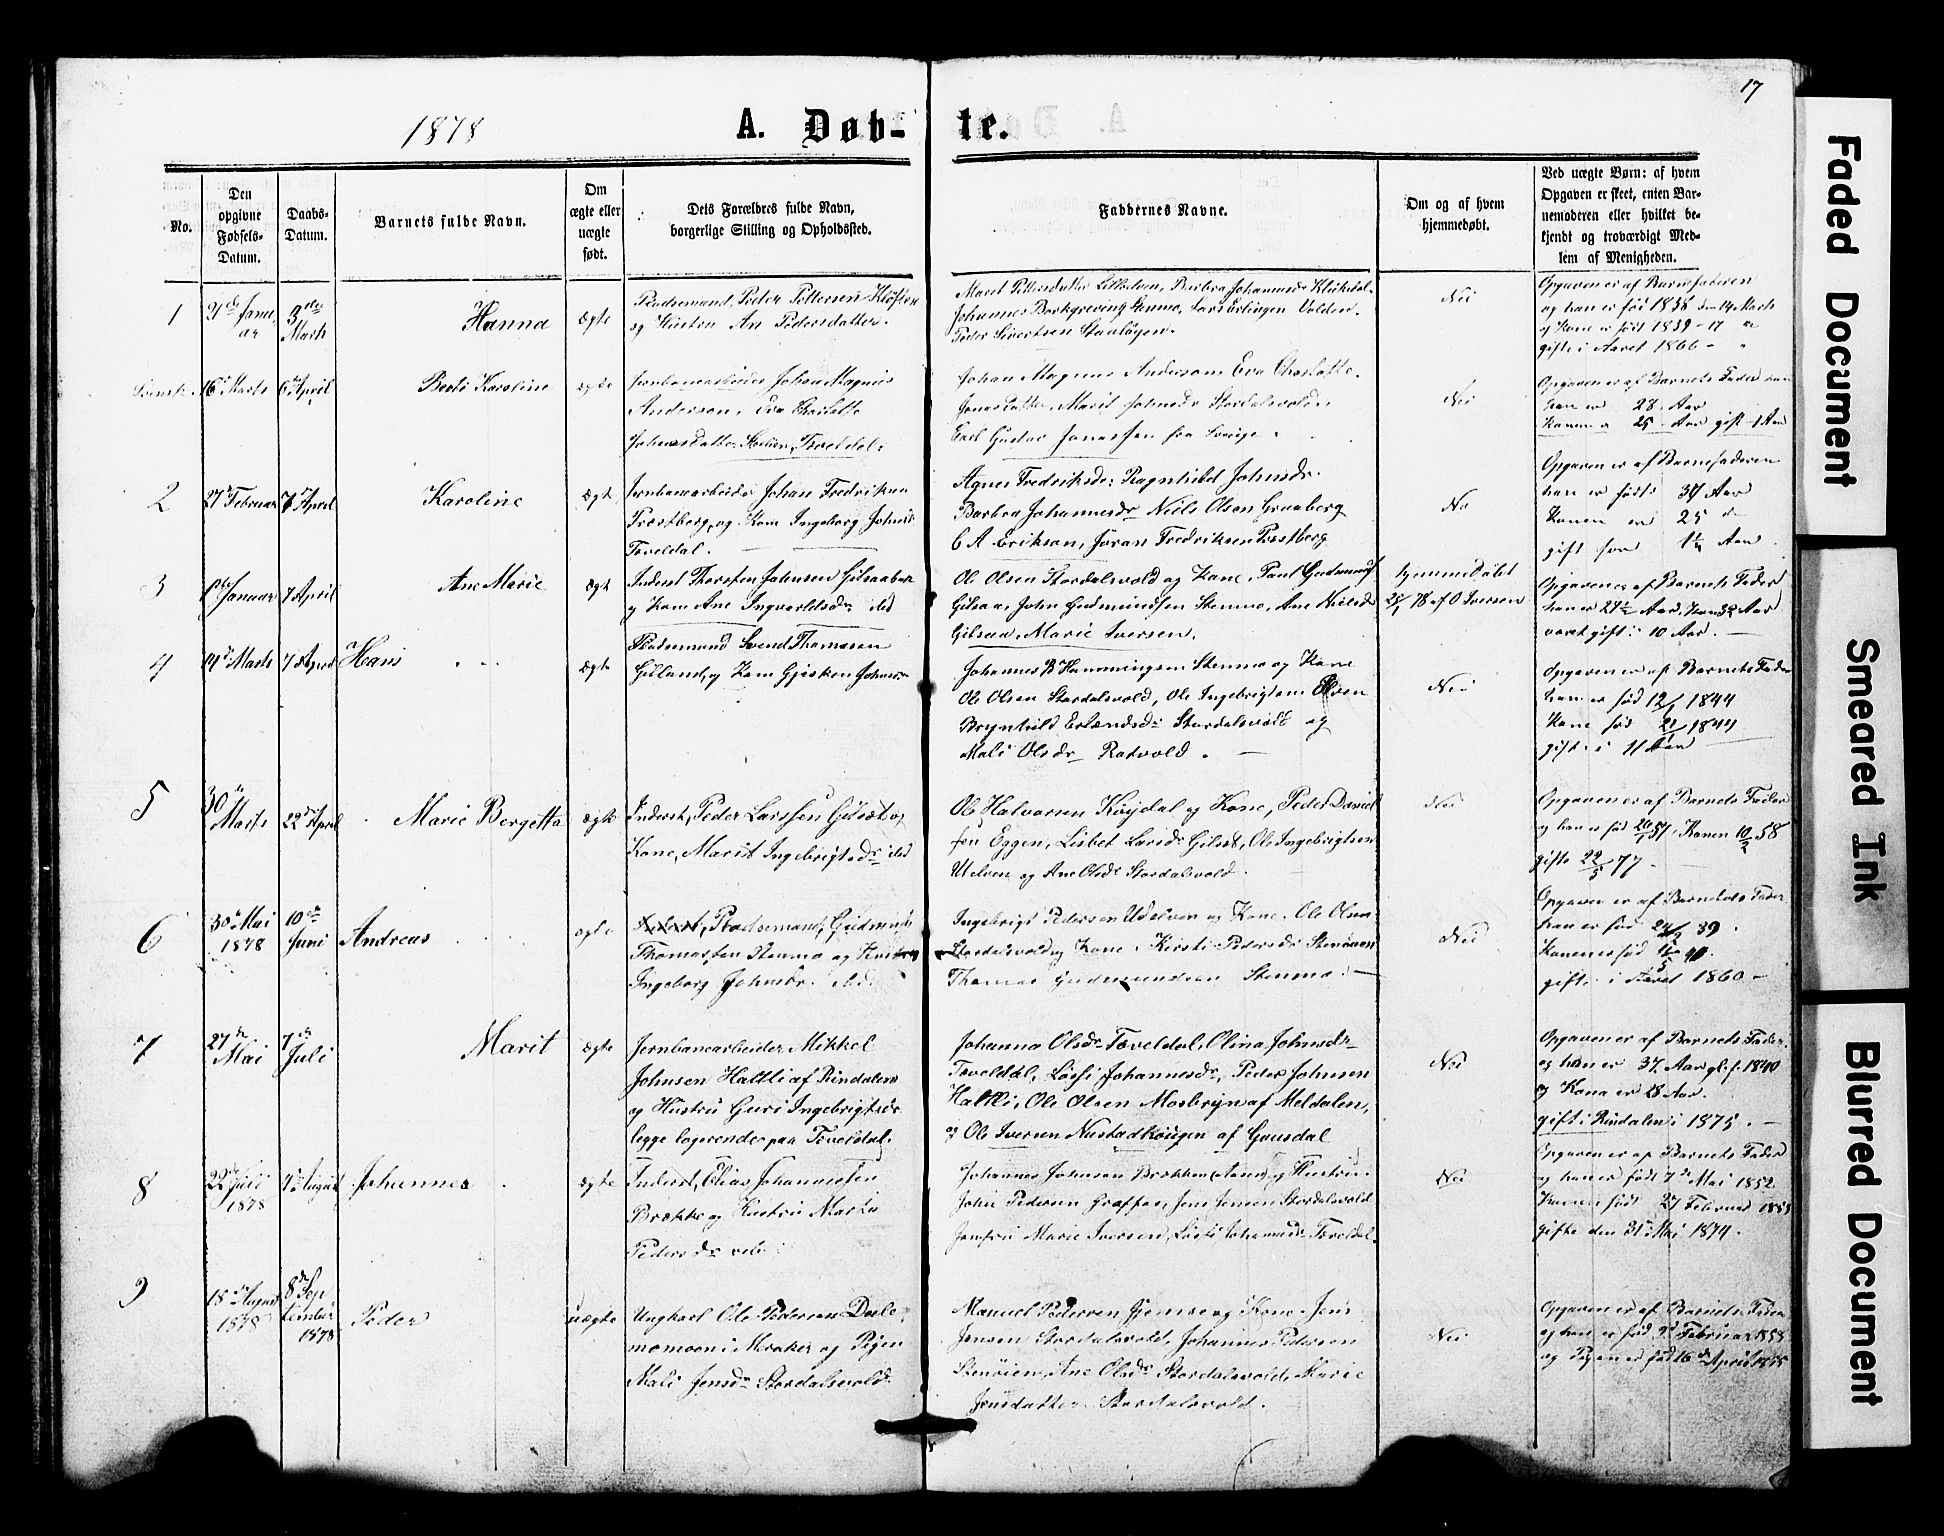 17
1878
A. Døb-
te.
No.
Den opgivne Fødsels-Datum.
Daabs-Datum.
Barnets fulde Navn.
Om ægte eller uægte født.
Dets Forældres fulde Navn, borgerlige Stilling og Opholdssted.
Faddernes Navne.
Om og af hvem hjemmedøbt.
Ved uægte Børn: af hvem Opgaven er skeet, enten Barnemoderen eller hvilket bekjendt og troværdigt Medlem af Menigheden.
1
3die Marts
Hanna
ægte
Pladsemand, Peder Pettersen
og Hustru An Pedersdatter.
Johannes
Peder Sivertsen
Nei
Opgaven er af Barnefaderen
og han er fød 1838 den 14 Marts
og Kone er født 1839 - 17
gifte i Aaret 1866
16 Marts
6 April
Karoline
Johan Magnus
Anderson, Eva Charlotte
Johan Magnus Anderson Eva Charlotte
Marit Johnsdr Stordalsvold
Carl Gustav Jonassen fra Sverige
Nei
Opgaven er af Barnets Fader
han er 28 Aar
Konen 25 Aar gift 1 Aar
2
27 Februar
7 April
Karoline
ægte
Jernbanearbeider Johan Fredriksen
og Kone Ingeborg Johnsdr
Teveldal.
Agnes Fredriksdr Ragnhild Johnsdr
Barbra Johannesdr Niels Olsen Graaberg
C A Erikson, Jöran Fredriksen
Opgaven er af Barnefaderen
han er født
Konen er 25
gift for 1¼ Aar
3
Januar
7 April
Ane Marie
ægte
Inderst Thorsten Johnsen
og Kone Ane Ingvaldsdr ibd
Ole Olsen Stordalsvold og Kone, Paul Gudmunds
Gilsaa, John Gudmundsen Stenmo, Ane Nielsdr
Gilsaa, Marie Iversen.
hjemmedøbt
78 af O Iversen
Opgaven er af Barnets Fader
han er 27½ Aar, Kone 32 Aar
været gift i 10 Aar.
4
14 Marts
7 April
Hans
ægte
Pladsemand Svend Thomasen
Gilland, og Kone Gjertru Johnsdr
Johannes Hemmingsen Stenmo og Kone
Ole Olsen Stordalsvold, Ole Ingebrigtsen
Brynhild Erlandsdr Stordalsvold og
Mali Olsdr Ratvold.
Nei
Opgaven er af Barnets Fader
han er fød 12/1 1844
Kone fød 21/1 1844
gifte i 11 Aar
5
30 Marts
22 April
Marie Bergetta
ægte
Inderst, Peder Larssen Gilset og
Kone, Marit Ingebrigtsdr ibd
Ole Halvorsen og Kone, Peder Daniel
sen Eggen, Lisbet Larsdr Gilset, Ole Ingebrigtsen
Udelven og Ane Olsdr Stordalsvold.
Nei
Opgaven er af Barnets Fader
og han er fød 26/1 51, Konen 10/2 58
gifte 22/5 77
6
30 Mai 1878
10de Juni
Andreas
ægte
Pladsemand, Gudmund
Thomassen Stenmo og Hustru
Ingeborg Johnsdr ibd.
Ingebrigt Pedersen Udelven og Kone, Ole Olsen
Stordalsvold og Kone, Kirsti Pedersdr Stenöien
Thomas Gudmundsen Stenmo.
Nei
Opgaven er af Barnets Fader
han er fød 39
Konen er fød
gifte i Aaret 1860
7
27de Mai
7de Juli
Marit
ægte
Jernbanearbeider Mikkel
Johnsen Haltli af Rindalen
og Hustru Guri Ingebrigtsdr
begge logerende paa Teveldal.
Johanna Olsdr Teveldal, Olina Johnsdr
Teveldal, Lössi Johannesdr, Peder Johnsen
Haltli, Ole Olsen Mosbryn af Meldalen,
og Ole Iversen Nustadhougen af Gausdal
Nei
Opgaven er af Barnets Fader
og han er 37 Aar gl. f. 1840
og Kona er 28 Aar.
gift i Rindalen i 1875.
8
22de Juli 1878
August
Johannes
ægte
Inderst, Elias Johannessen
Brække og Hustru Martha
Pedersdr
Johannes Johnsen Brækken og Hustru
John Pedersen, Jens Jensen Stordalsvold
Jomfru Marie Iversen, Lössi Johannesdr Teveldal
Nei
Opgaven er af Barnets Fader
og han er født 7de Mai 1852
Konen født 27 Februar
gifte den 31 Mai 1874.
9
18de August 1878
8de September 1878
Peder
uægte
Ungkarl Ole Pedersen Dale
momoen i Meraker og Pigen
Mali Jensdr Stordalsvold
Manuel Pedersen og Kone, Jens
Jensen Stordalsvold, Johannes Pedersen
Stenöien, Ane Olsdr Stordalsvold, Marie
Jensdatter Stordalsvold.
Nei
Opgaven er af Barnets Fader
og han er fød Februar
og Pigen er fød 16de April
Faded Document
Smeared Ink
Blurred Document